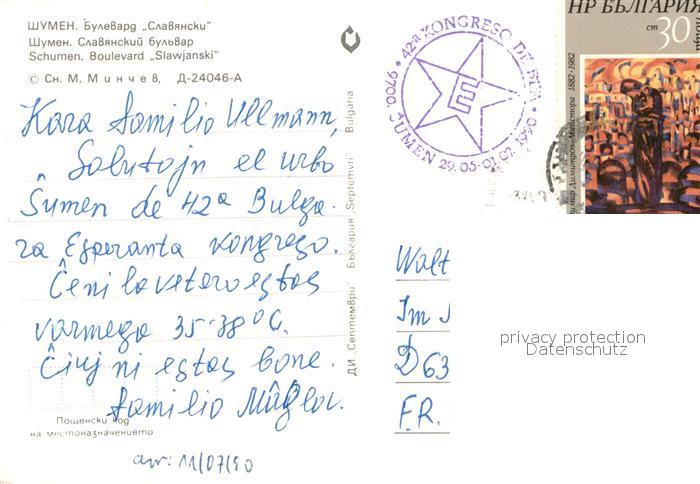 ШУМЕН. Булевард „Славянски"
Шумен. Славянский бульвар
Schumen. Boulevard „Slawjanski"
© Сн. М. Минчев, Д-24046-А
Kara familio Ullmann,
Salutojn el urbo
Ŝumen de 42ª Bulga-
ra Esperanta kongreso.
Ĉe ni la vetero estas
varmega 35-38°C.
Ĉiuj ni estas bone.
familio
Пощенски код
на местоназначението
arr: 11/07/90
ДИ „Септември" България „Septemvri" Bulgaria
42a KONGRESO DE BEA
9700, ŜUMEN 29.06-01.07.1990
НР БЪЛГАРИЯ
ст 30
поща
1882-1982
Владимир Димитров-Майстора
Walt
Im
D 63
F.R.
privacy protection
Datenschutz